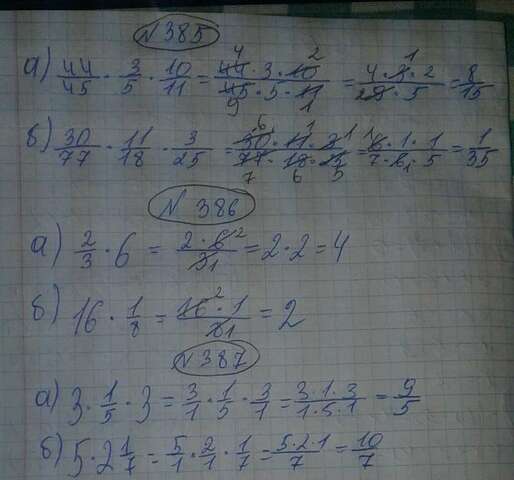 N 385
а) 44/45 · 3/5 · 10/11 = 44 4 · 3 · 10 2 / 45 9 · 5 · 11 1 = 4 · 3 1 · 2 / 9 · 5 = 8/15
б) 30/77 · 11/18 · 3/25 = 30 6 · 11 1 · 3 1 / 77 7 · 18 6 · 25 5 = 6 1 · 1 · 1 / 7 · 6 1 · 5 = 1/35
N 386
а) 2/3 · 6 = 2 · 6 2 / 3 1 = 2 · 2 = 4
б) 16 · 1/8 = 16 2 · 1 / 8 1 = 2
N 387
а) 3 · 1/5 · 3 = 3/1 · 1/5 · 3/1 = 3 · 1 · 3 / 1 · 5 · 1 = 9/5
б) 5 · 2 1/7 = 5/1 · 2/1 · 1/7 = 5 · 2 · 1 / 7 = 10/7